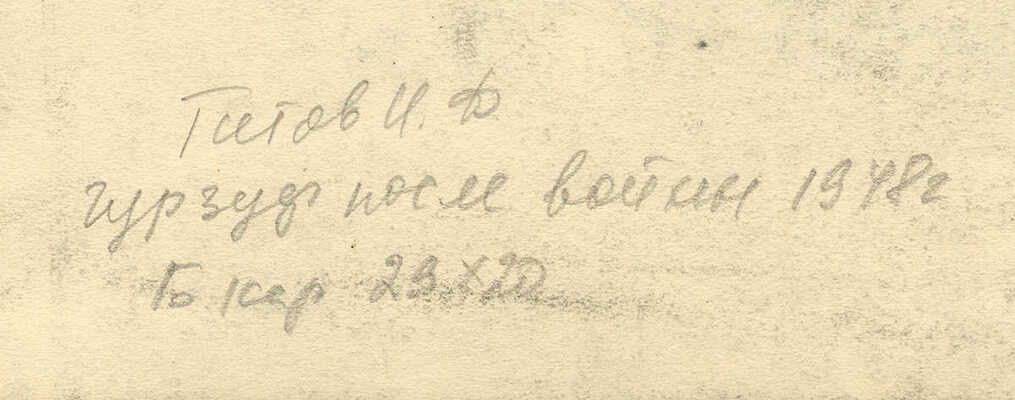 Титов И. Ф
гурзуф после войны 1948г
Б кар 29х20